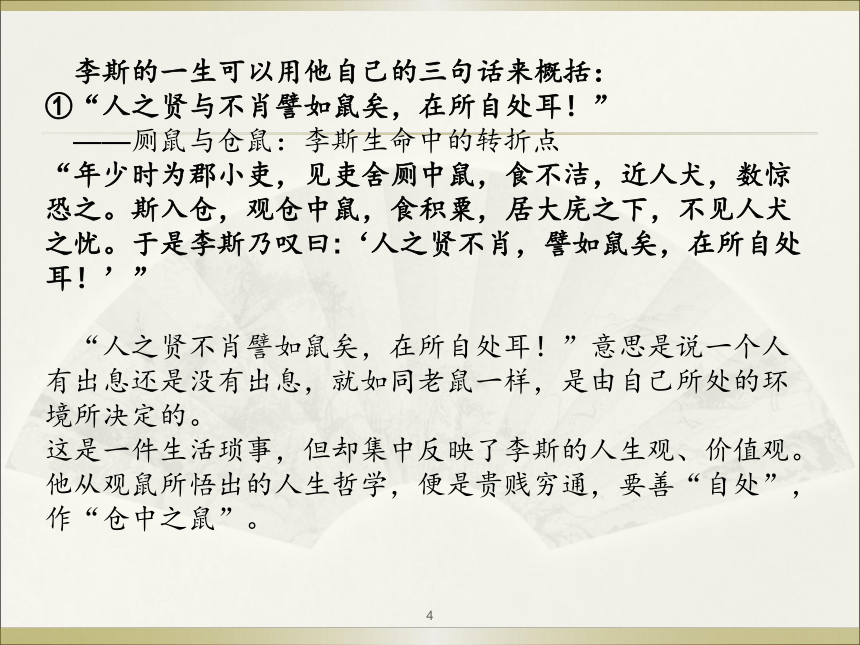 李斯的一生可以用他自己的三句话来概括：
①“人之贤与不肖譬如鼠矣，在所自处耳！”
——厕鼠与仓鼠：李斯生命中的转折点
“年少时为郡小吏，见吏舍厕中鼠，食不洁，近人犬，数惊
恐之。斯入仓，观仓中鼠，食积粟，居大庑之下，不见人犬
之忧。于是李斯乃叹曰：‘人之贤不肖，譬如鼠矣，在所自处
耳！’”
“人之贤不肖譬如鼠矣，在所自处耳！”意思是说一个人
有出息还是没有出息，就如同老鼠一样，是由自己所处的环
境所决定的。
这是一件生活琐事，但却集中反映了李斯的人生观、价值观。
他从观鼠所悟出的人生哲学，便是贵贱穷通，要善“自处”，
作“仓中之鼠”。
4